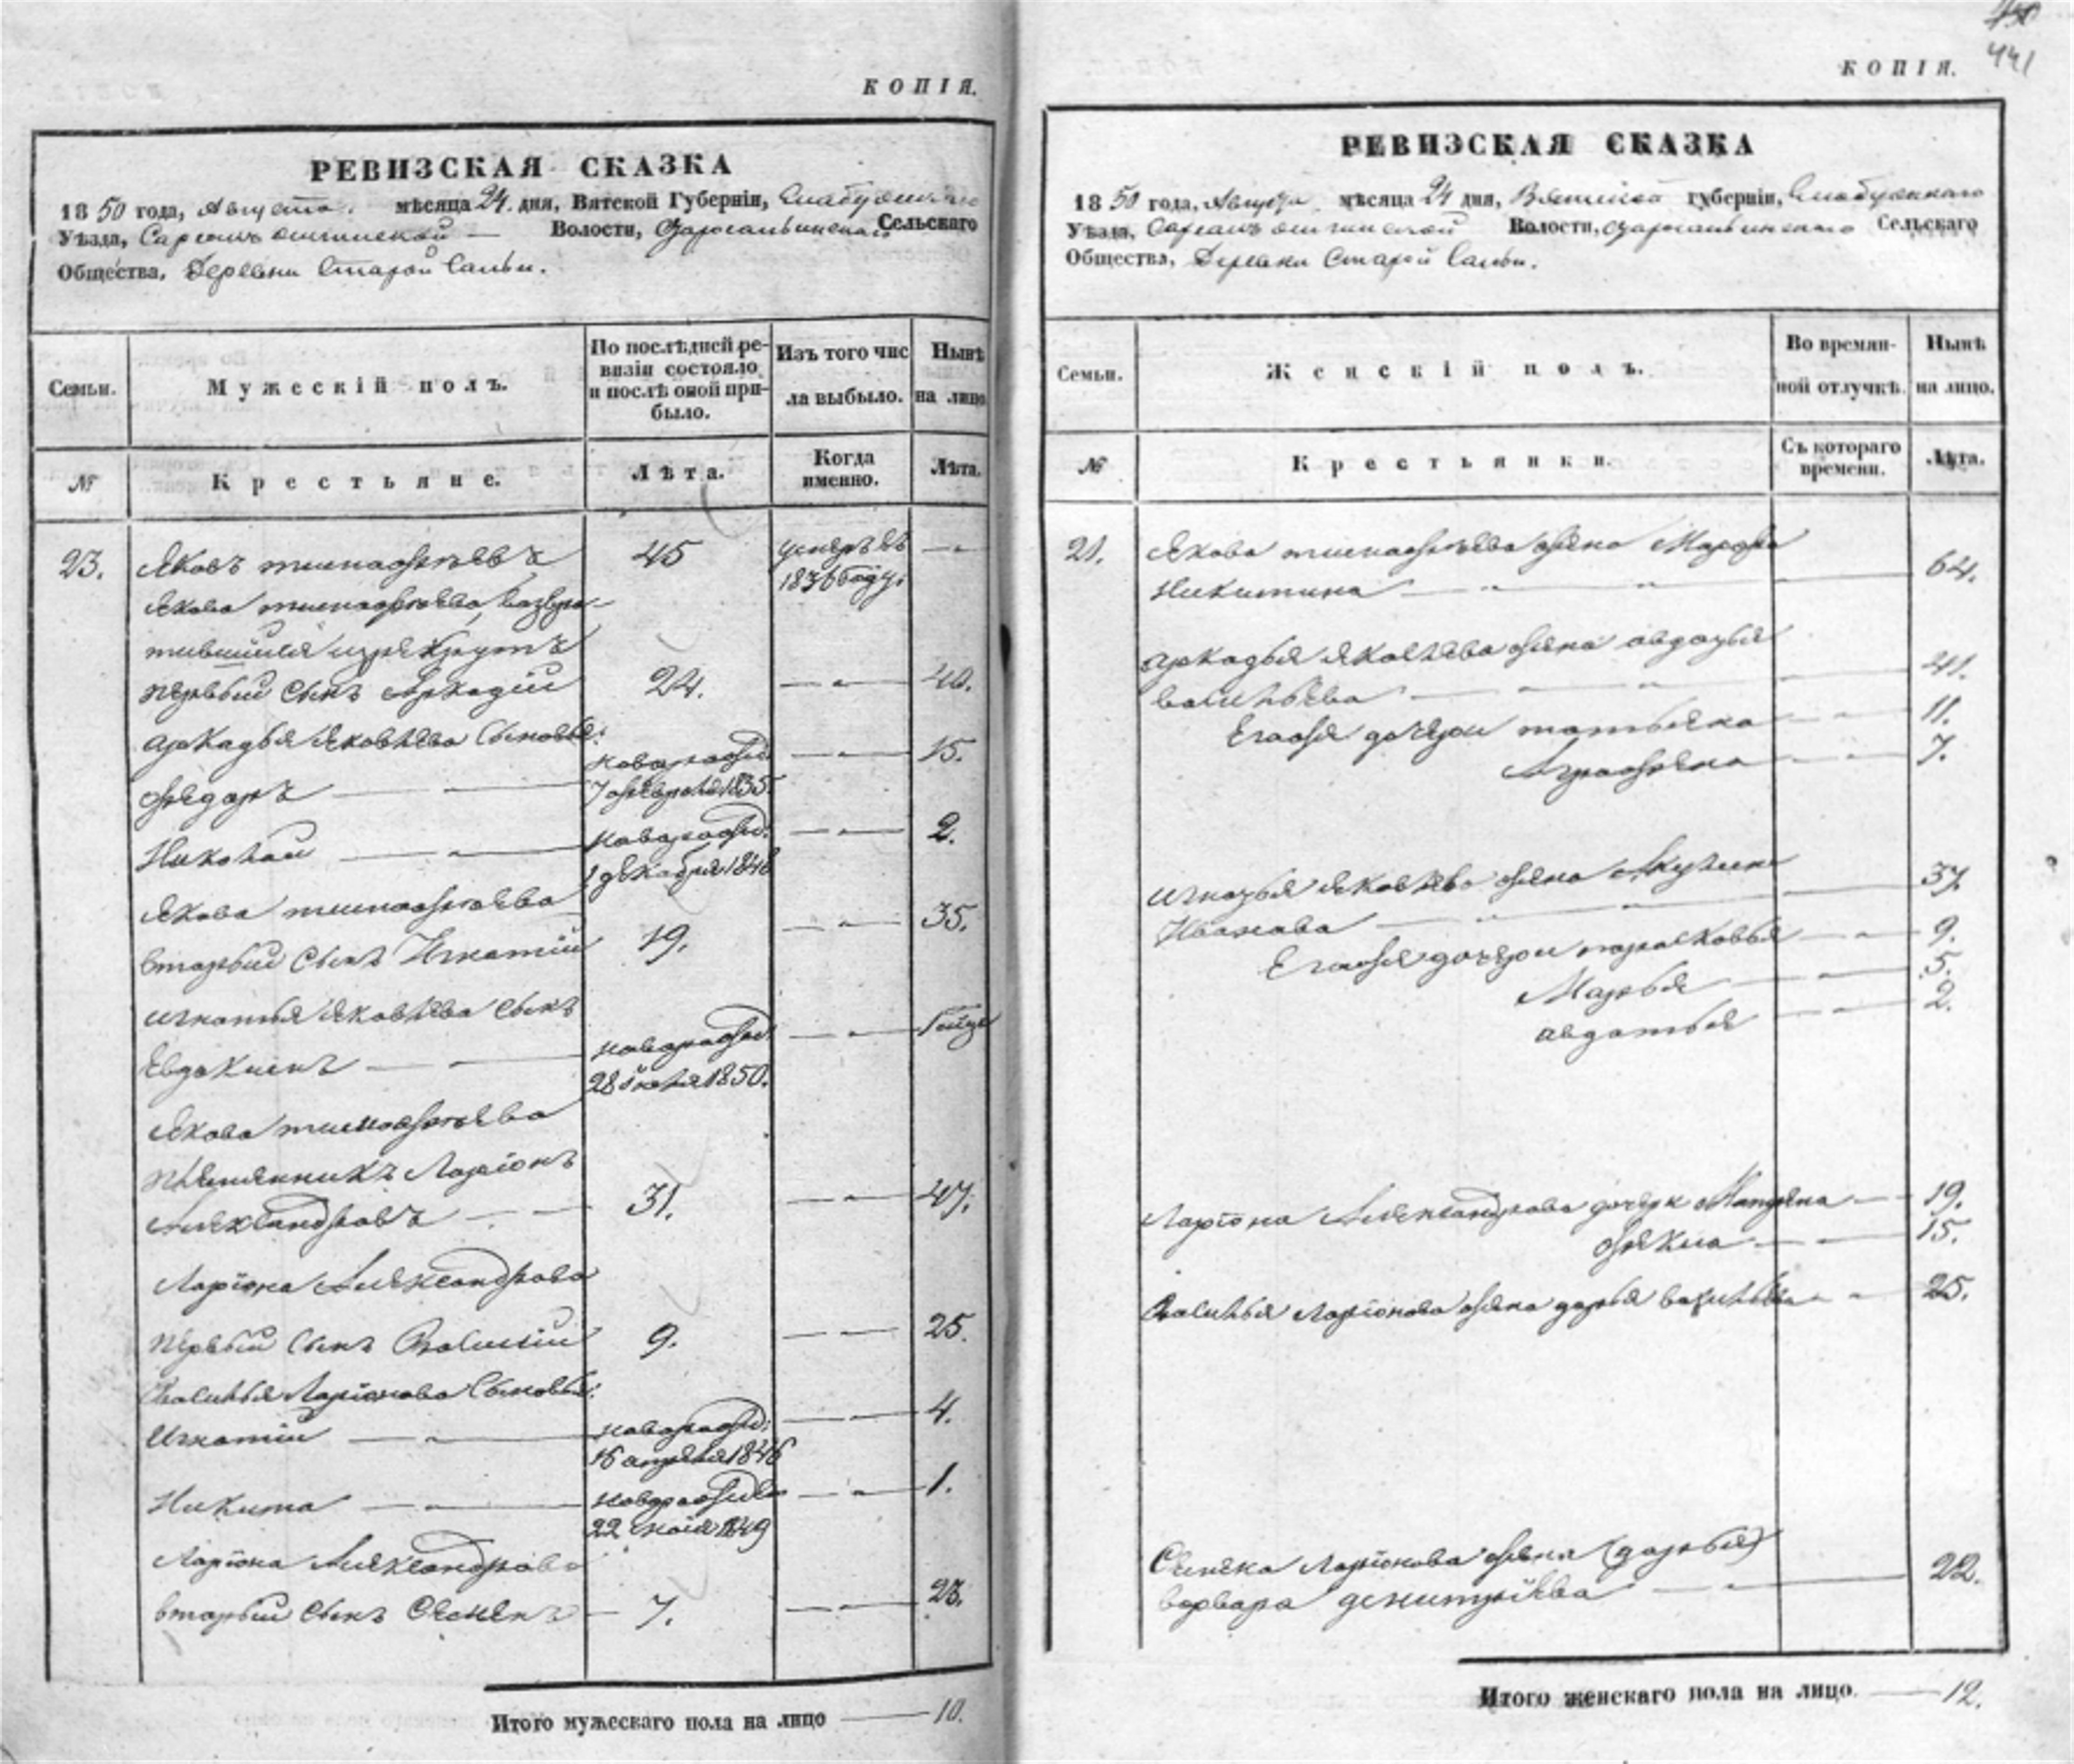 КОПІЯ.
РЕВИЗСКАЯ СКАЗКА
1850 года, Августа. мѣсяца 24. дня, Вятской Губерніи, Елабужскаго
Уѣзда, Волости, Сельскаго
Общества, Деревни Старой Сальи.
Семьи. Мужескій полъ. По послѣдней ре- Изъ того чис Нынѣ
визіи состояло
и послѣ оной при- ла выбыло. на лицо
было.
№ Крестьяне. Лѣта. Когда Лѣта.
именно.
23. Яковъ Тимофѣевъ 45 умеръ въ —
1836 году.
Якова Тимофѣева, возвра-
тившийся из рекрутъ
первый сынъ Аркадій 24. — 40.
Аркадья Яковлева сыновья:
Федоръ — новорожд: — 15.
7 февраля 1835.
Николай — новорожд: — 2.
1 декабря 1848
Якова Тимофѣева
вторый сынъ Игнатій 19. — 35.
Игнатья Яковлева сынъ
Евдокимъ — новорожд: —
28 1850.
Якова Тимофѣева
племянникъ Ларіонъ
Александровъ — 31. — 47.
Ларіона Александрова
первый сынъ Василій 9. — 25.
Василья Ларіонова сыновья:
Игнатій — новорожд: — 4.
16 апреля 1846
Никита — новорожд — 1.
22 мая 1849
Ларіона Александрова
вторый сынъ Семенъ — 7. — 23.
Итого мужескаго пола на лицо — 10.
441
КОПІЯ.
РЕВИЗСКАЯ СКАЗКА
1850 года, Августа мѣсяца 24 дня, Вятской губерніи, Елабужскаго
Уѣзда, Волости, Сельскаго
Общества, Деревни Старой Сальи.
Семьи. Женскій полъ. Во времян- Нынѣ
ной отлучкѣ. на лицо.
№ Крестьянки. Съ котораго Лѣта.
времени.
21. Якова Тимофѣева жена Марфа
Никитина — 64.
Аркадья Яковлева жена Авдотья
Васильева — 41.
Егожъ дочери Татьяна — 11.
Аграфена — 7.
Игнатья Яковлева жена Акулина
Иванова — 37
Егожъ дочери Парасковья — 9.
Марья — 5.
Авдотья — 2.
Ларіона Александрова дочери — 19.
Фекла — 15.
Василья Ларіонова жена Дарья Васильева — 25.
Семена Ларіонова жена (Дарья)
Варвара Дмитріева — 22.
Итого женскаго пола на лицо — 12.